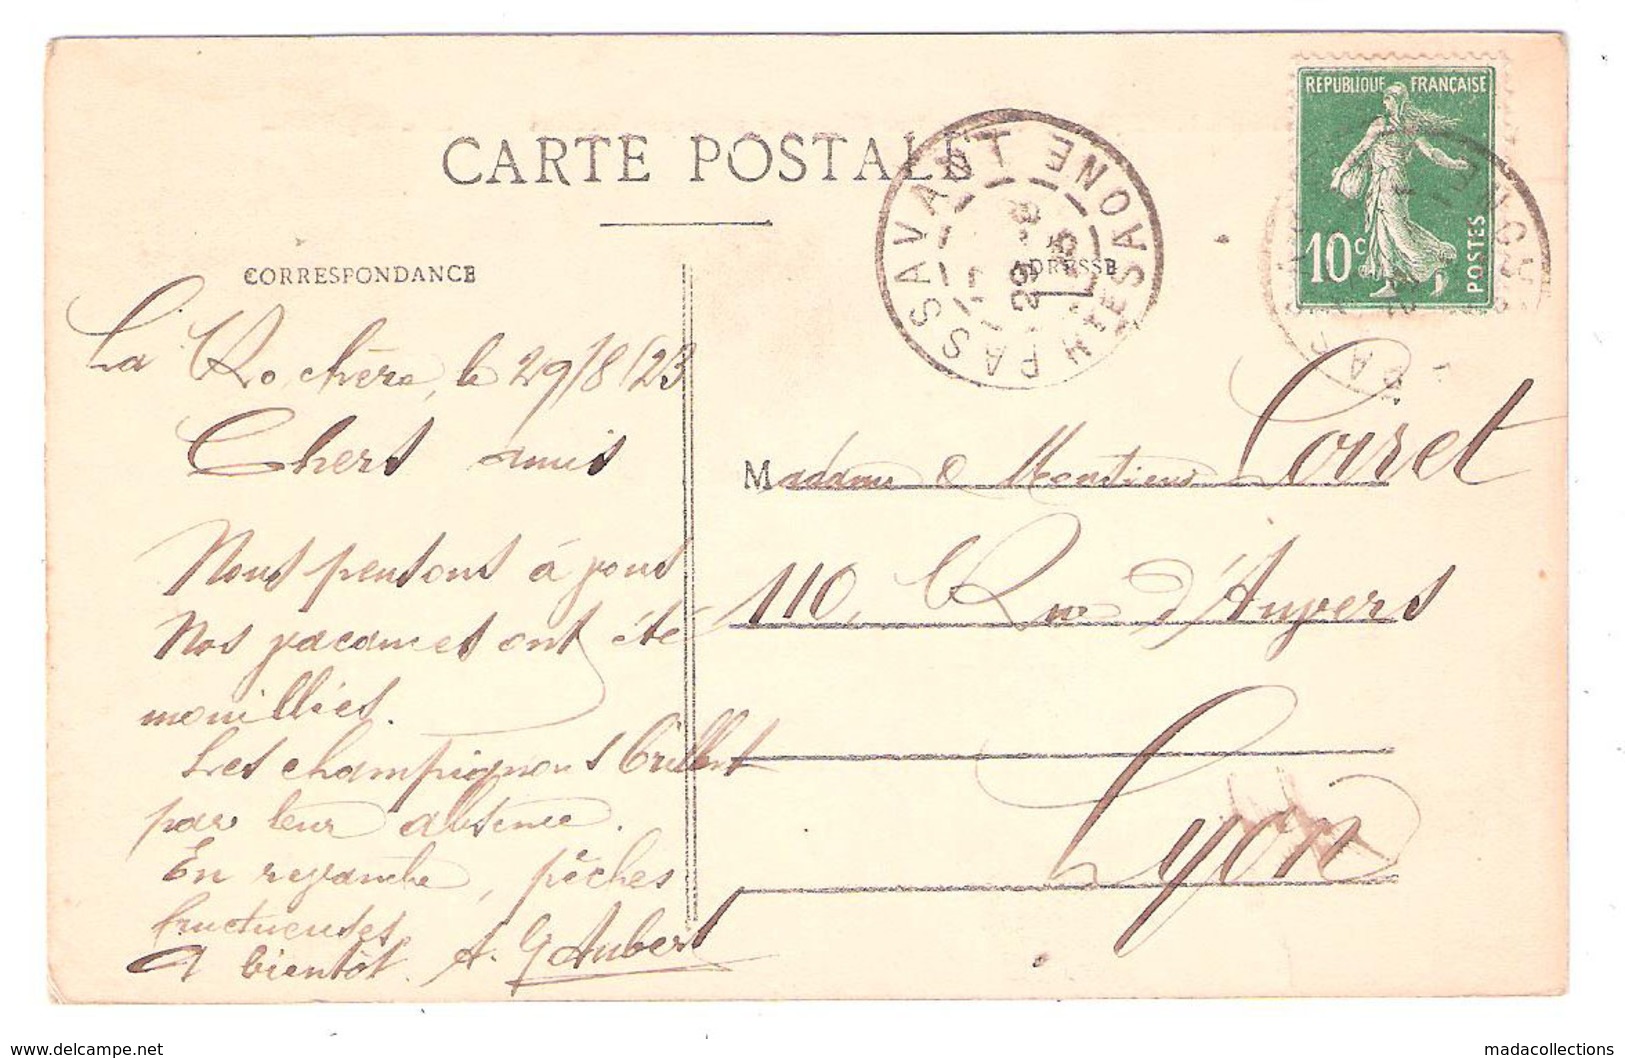 CARTE POSTALE
CORRESPONDANCE
ADRESSE
REPUBLIQUE FRANÇAISE
10c
POSTES
PASSAVANT
HTE SAONE
29 - 8
La Rochère, le 29/8/23
Chers amis
Nous pensons à vous
Nos vacances ont été
mouillées.
Les champignons brillent
par leur absence.
En revanche, pêches
fructueuses.
A bientôt. A. G Aubert
Madame & Monsieur Loiret
110, Rue d'Anvers
Lyon
www.delcampe.net
madacollections